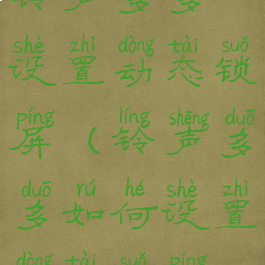 铃声多多
shè zhì dòng tài suǒ
设置动态锁
píng líng shēng duō
屏(铃声多
duō rú hé shè zhì
多如何设置
dòng tài suǒ píng